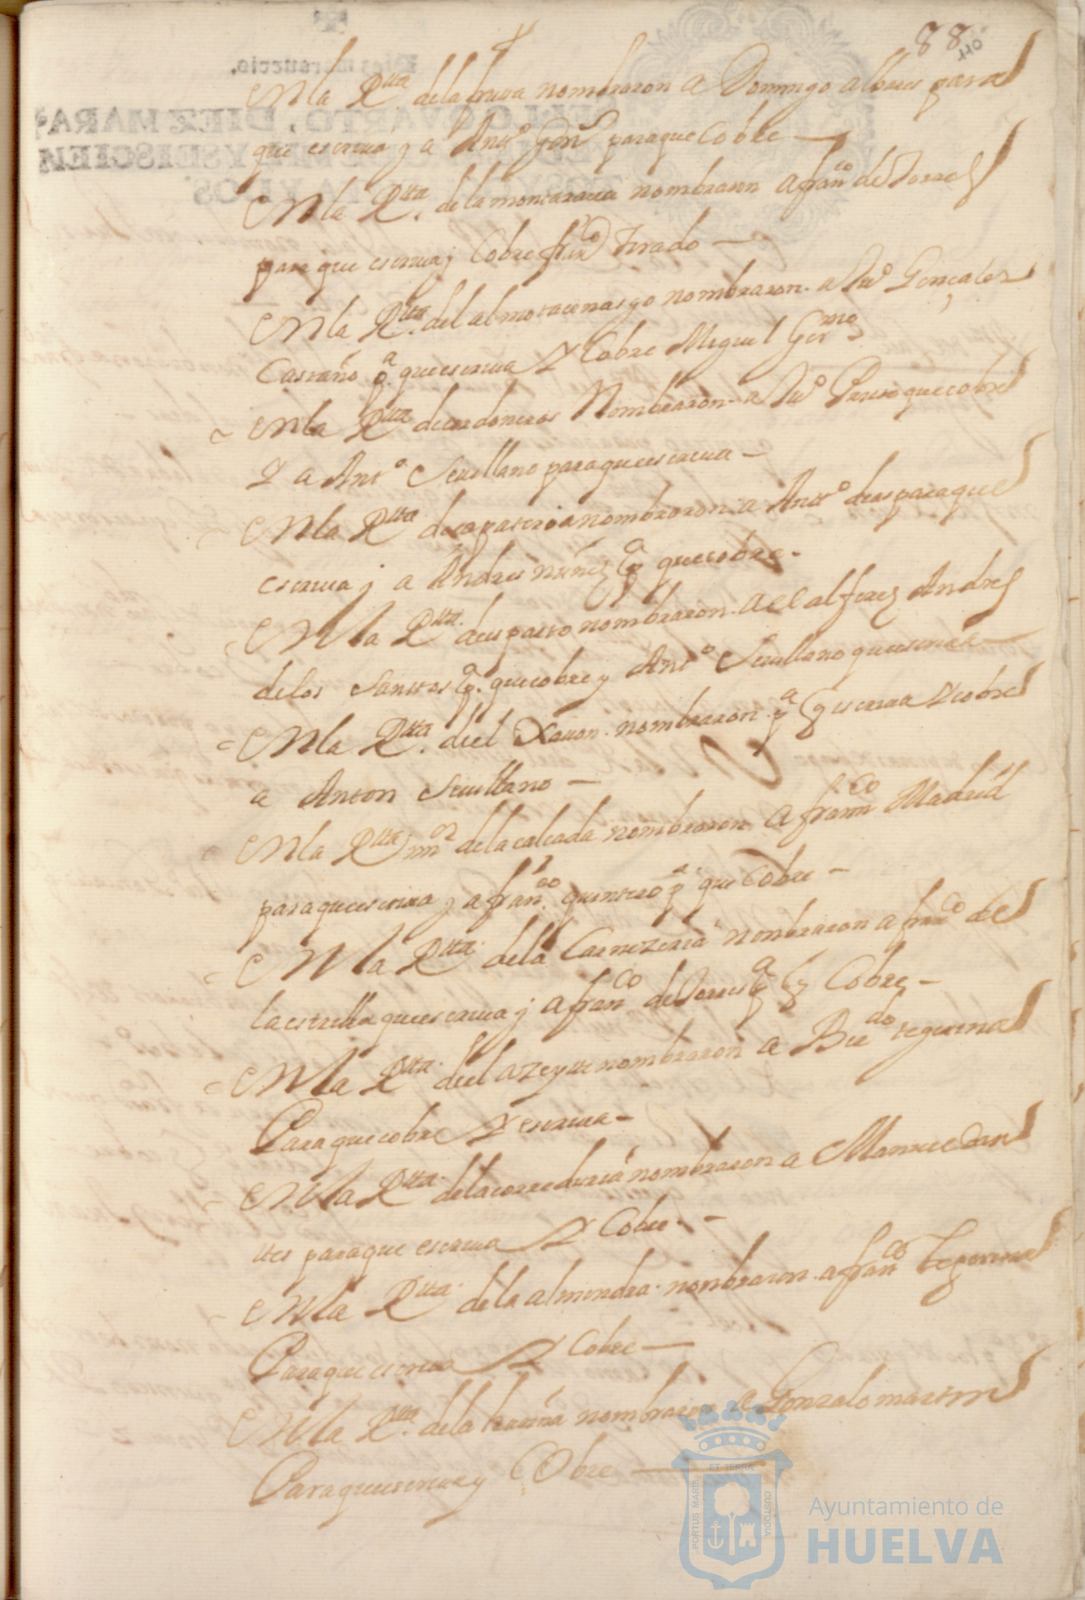 88
En la Rtta de la fruta nombraron a Domingo albares para
que escriua y a Antº Gonz para que cobre
En la Rtta de la montarasia nombraron a franco de Torres
para que escriua y Cobre franco tirado
En la Rtta del almotacenasgo nombraron a Juº Gonçales
Castaño pa que escriua Y Cobre Miguel Germo
En la Rtta de cordoneros Nombraron a Juº que cobre
Y a Antº Seuillano para que escriua
En la Rtta de nombraron a Antº para que
escriua y a Andres nuñez pa que cobre
En la Rtta de esparto nombraron a el alferez Andres
de los Santtos pa que cobre y Antº Seuillano que escriua
En la Rtta de el Xauon nombraron pa q escriua Y cobre
a Anton Seuillano
En la Rtta de la calçada nombraron a franco Madrid
para que escriua y a franco quintero pa que Cobre
En la Rtta de la Carnezeria nonbraron a franco de
la estrella que escriua y a franco de Torres pa q Cobre
En la Rtta de el azeyte nombraron a tegerina
Para que cobre Y escriua
En la Rtta de la correduria nombraron a Manuel dan
tes para que escriua Y Cobre
En la Rtta de la almendra nonbraron a franco tegerina
Para que escriua Y Cobre
En la Rtta de la nombraron a Gonzalo martin
Para que escriua y Cobre
PORTUS MARIS ET TERRAE CUSTODIA
Ayuntamiento de
HUELVA